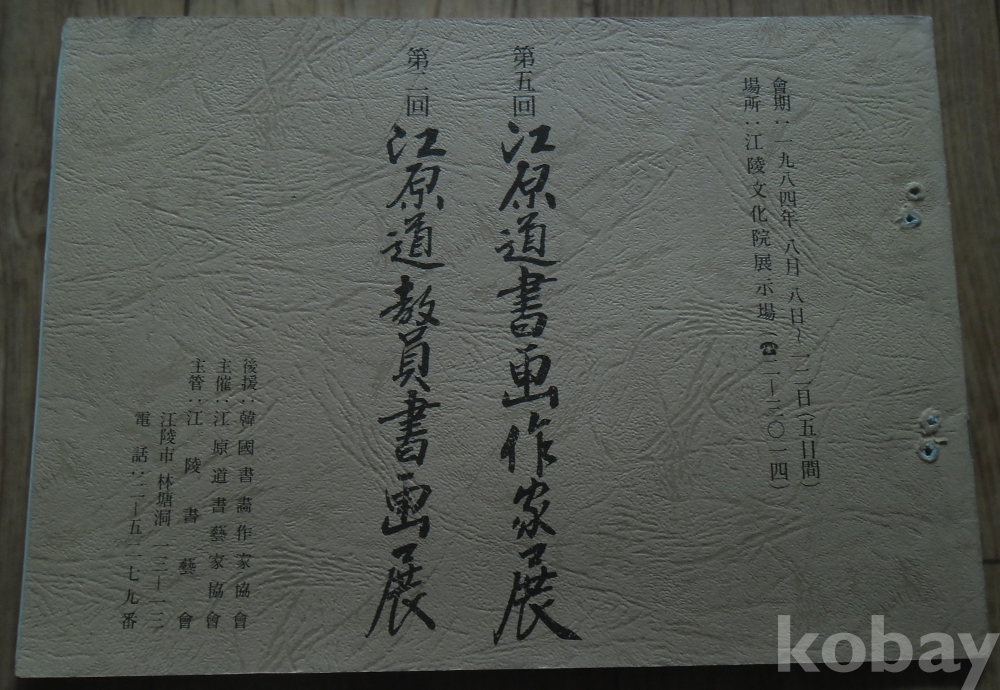 會期：一九八四年 八月 八日~一二日(五日間)
場所：江陵文化院展示場(☎二-三〇一四)
第五回 江原道書画作家展
第二回 江原道教員書画展
後援：韓國書畵作家協會
主催：江原道書藝家協會
主管：江陵書藝會
江陵市 林塘洞 一三-一三
電話：二-五二七九番
kobay